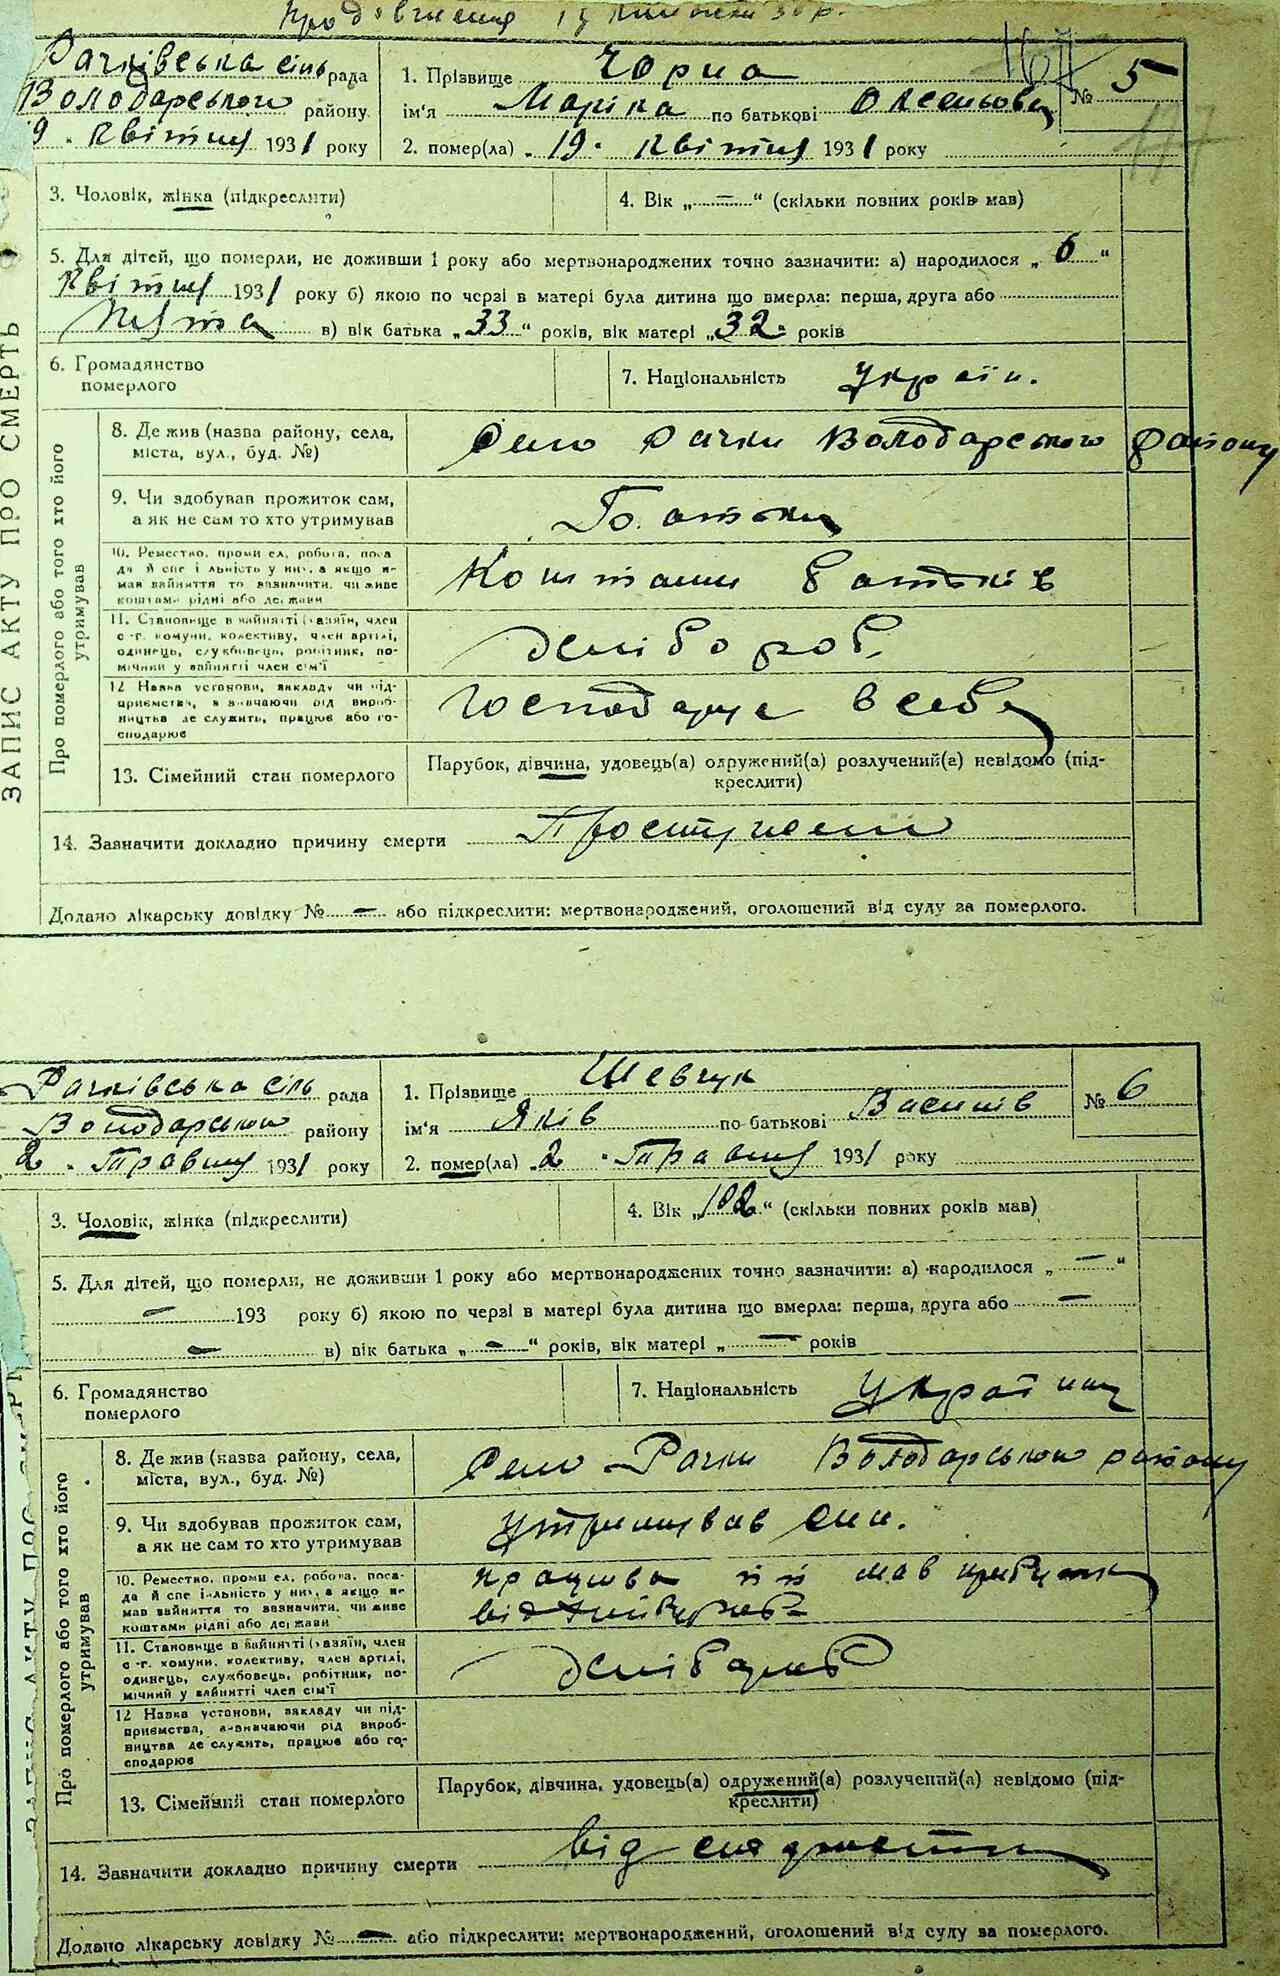 Рачківська сіль рада
Володарського району
9. квітня 1931 року
1. Прізвище Чорна
№ 5
ім'я Маріка по батькові Оксеньова
2. помер(ла) 19. квітня 1931 року
3. Чоловік, жінка (підкреслити)
4. Вік „ — “ (скільки повних років мав)
5. Для дітей, що померли, не доживши 1 року або мертвонароджених точно зазначити: а) народилося „ 6 “
квітня 1931 року б) якою по черзі в матері була дитина що вмерла: перша, друга або
п'ята в) вік батька „33“ років, вік матері „32“ років
6. Громадянство
померлого
7. Національність Україн.
ЗАПИС АКТУ ПРО СМЕРТЬ
Про померлого або того хто його
утримував
8. Де жив (назва району, села,
міста, вул., буд. №)
Село Рачки Володарського району
9. Чи здобував прожиток сам,
а як не сам то хто утримував
Батьки
10. Ремество, промисел, робота, поса-
да й спеціальність у них, а якщо не
мав зайняття то зазначити, чи живе
коштами рідні або держави
Коштами батьків
11. Становище в зайнятті (хазяїн, член
с.-г. комуни, колективу, член артілі,
одинець, службовець, робітник, по-
мічний у зайнятті член сім'ї
хлібороб
12 Назва установи, закладу чи під-
приємства, зазначаючи рід вироб-
ництва де служить, працює або го-
сподарює
Господарює в себе
13. Сімейний стан померлого
Парубок, дівчина, удовець(а) одружений(а) розлучений(а) невідомо (під-
креслити)
14. Зазначити докладно причину смерти Простуда
Додано лікарську довідку № — або підкреслити: мертвонароджений, оголошений від суду за померлого.
Рачківська сіль рада
Володарського району
2. Травня 1931 року
1. Прізвище Шевчук
№ 6
ім'я Яків по батькові Василів
2. помер(ла) 2. Травня 1931 року
3. Чоловік, жінка (підкреслити)
4. Вік „102“ (скільки повних років мав)
5. Для дітей, що померли, не доживши 1 року або мертвонароджених точно зазначити: а) народилося „ — “
— 193 року б) якою по черзі в матері була дитина що вмерла: перша, друга або —
— в) вік батька „ — “ років, вік матері „ — “ років
6. Громадянство
померлого
7. Національність Українец
Про померлого або того хто його
утримував
8. Де жив (назва району, села,
міста, вул., буд. №)
Село Рачки Володарського району
9. Чи здобував прожиток сам,
а як не сам то хто утримував
утримував син.
10. Ремество, промисел, робота, поса-
да й спеціальність у них, а якщо не
мав зайняття то зазначити, чи живе
коштами рідні або держави
мав прибуток
від
11. Становище в зайнятті (хазяїн, член
с.-г. комуни, колективу, член артілі,
одинець, службовець, робітник, по-
мічний у зайнятті член сім'ї
хлібороб
12 Назва установи, закладу чи під-
приємства, зазначаючи рід вироб-
ництва де служить, працює або го-
сподарює
13. Сімейний стан померлого
Парубок, дівчина, удовець(а) одружений(а) розлучений(а) невідомо (під-
креслити)
14. Зазначити докладно причину смерти від
Додано лікарську довідку № — або підкреслити: мертвонароджений, оголошений від суду за померлого.